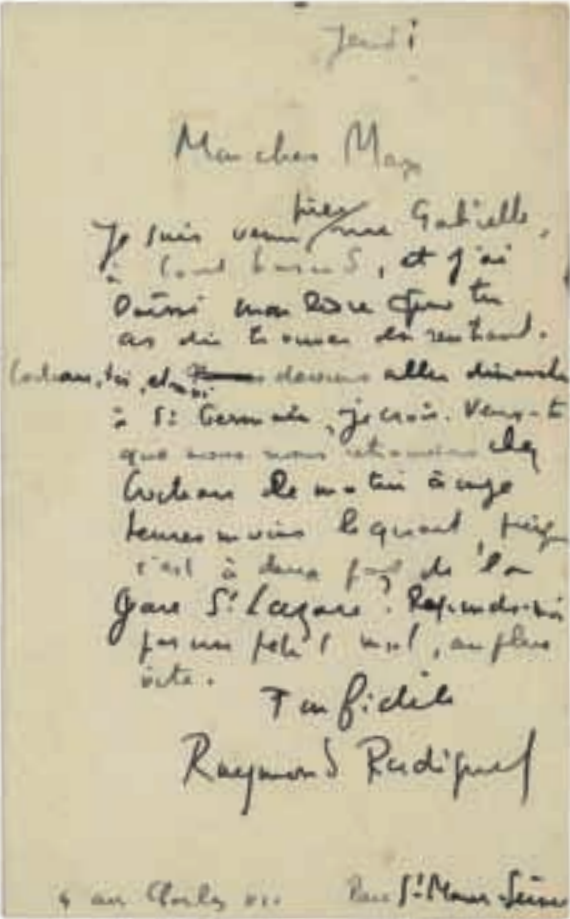 Jeudi
Mon cher Max
hier
Je suis venu rue Gabrielle,
à tout hasard, et j'ai
laissé mon livre que tu
as dû trouver en rentrant.
Cocteau, toi, et moi devons aller dimanche
à St Germain, je crois. Veux-tu
que nous nous retrouvions chez
Cocteau le matin à onze
heures moins le quart, puisque
c'est à deux pas de la
gare St Lazare ? Réponds-moi
par un petit mot, au plus
vite.
Ton fidèle
Raymond Radiguet
Parc St-Maur Seine